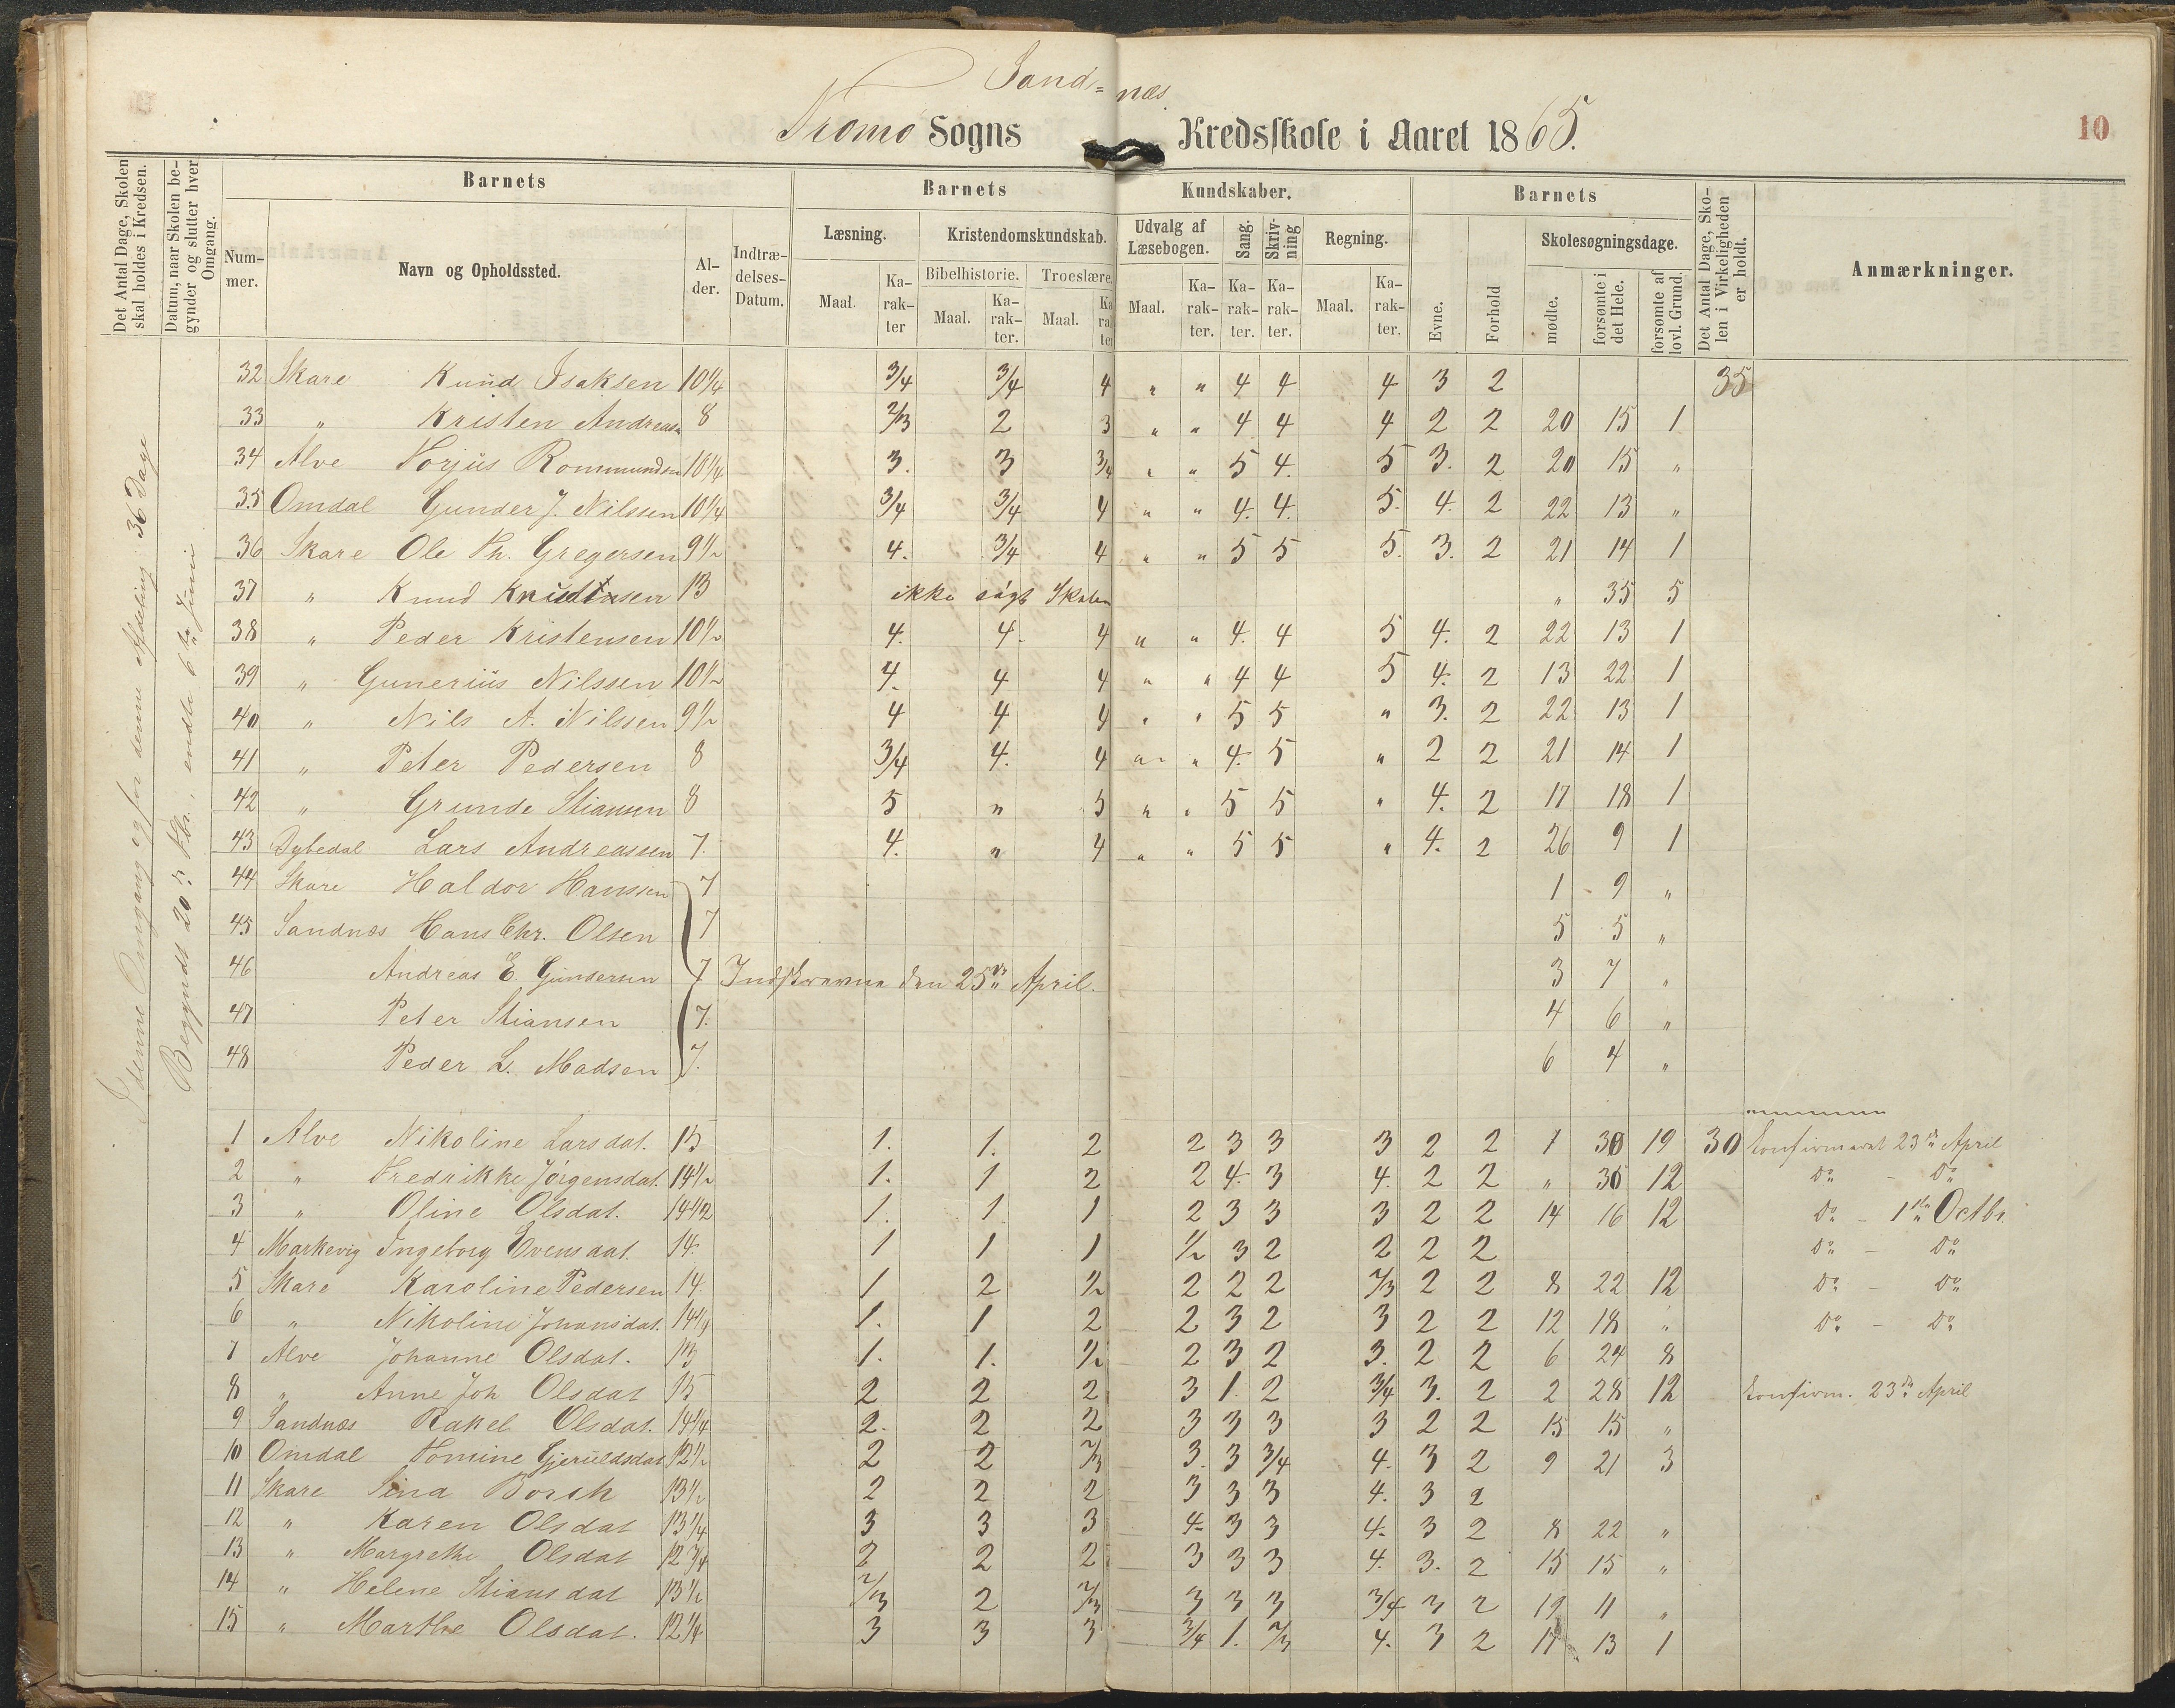 Sand=næs
Tromø Sogns Kredsskole i Aaret 1865.
10
Det Antal Dage, Skolen skal holdes i Kredsen.
Datum, naar Skolen begynder og slutter hver Omgang.
Barnets
Barnets
Kundskaber.
Barnets
Det Antal Dage, Skolen i Virkeligheden er holdt.
Anmærkninger.
Nummer.
Navn og Opholdssted.
Alder.
Indtrædelses-Datum.
Læsning.
Kristendomskundskab.
Udvalg af Læsebogen.
Sang.
Skrivning
Regning.
Evne.
Forhold
Skolesøgningsdage.
Bibelhistorie.
Troeslære.
Maal.
Karakter
Maal.
Karakter.
Maal.
Karakter
Maal.
Karakter.
Karakter.
Karakter.
Maal.
Karakter.
mødte.
forsømte i det Hele.
forsømte af lovl. Grund.
I denne Omgang og for denne Afdeling 36 Dage
Begyndt 20de Fbr., endte 6te Juni
32 Skare Knud Isaksen 10 1/4 3/4 3/4 4 " " 4 4 4 3 2 35
33 " Kristen Andreasen 8 2/3 2 3 " " 4 4 4 2 2 20 15 1
34 Alve Torjus Rommundsen 10 1/4 3. 3 3/4 " " 5 4. 5 3. 2 20 15 "
35 Omdal Gunder J. Nilssen 10 1/4 3/4 3/4 4 " " 4. 4. 5. 4. 2 22 13 "
36 Skare Ole Th. Gregersen 9 1/2 4. 3/4 4 " " 5 5 5. 3. 2 21 14 1
37 " Knud 13 ikke søgt Skolen " 35 5
38 " Peder Kristensen 10 1/2 4. 4. 4 " " 4. 4 5 4. 2 22 13 1
39 " Gunerius Nilssen 10 1/2 4. 4 4 " " 4 4 5 4. 2 13 22 1
40 " Nils A. Nilssen 9 1/2 4 4 4 " " 5 5 " 3. 2 22 13 1
41 " Peter Pedersen 8 3/4 4. 4 " " 4. 5 " 2 2 21 14 1
42 " Grunde Stiansen 8 5 " 5 " " 5 5 " 4. 2 17 18 1
43 Dybedal Lars Andreassen 7. 4. " 4 " " 5 5 " 4. 2 26 9 1
44 Skare Haldor Hanssen 7 1 9 "
45 Sandnæs Hans Chr. Olsen 7 5 5 "
46 Andreas E. Gundersen 7 Indskrevne den 25de April. 3 7 "
47 Peter Stiansen 7. 4 6 "
48 Peder L. Madsen 7. 6 4 "
1 Alve Nikoline Larsdat. 15 1. 1. 2 2 3 3 3 2 2 1 30 19 30 Konfirmeret 23de April
2 " Fredrikke Jørgensdat. 14 1/2 1. 1 2 2 4. 3 4. 2 2 " 30 12 Do - Do
3 " Oline Olsdat. 14 1/2 1. 1. 1 2 3 3 3 2 2 14 16 12 Do - 1ste Octbr.
4 Markevig Ingeborg Evensdat. 14. 1 1 1 1/2 3 2 2 2 2 Do - Do
5 Skare Karoline Pedersen 14. 1 2 1/2 2 2 2 2/3 2 2 8 22 12 Do - Do
6 " Nikoline Johansdat. 14 1/4 1. 1 2 2 3 2 3 2 2 12 18 " Do - Do
7 Alve Johanne Olsdat. 13 1. 1. 1/2 2 3 2 3. 2 2 6 24 8
8 " Anne Joh Olsdat 15 2 2 2 3 1. 2 3/4 3. 2 2 28 12 Konfirm. 23de April
9 Sandnæs Rakel Olsdat. 14 1/4 2. 2 2 3 3 3 3 2 2 15 15 "
10 Omdal Tomine Gjeruldsdat 12 1/2 2 2 2/3 3. 3 3/4 4. 3 2 9 21 3
11 Skare Sina Borsk 13 1/2 2 2 2 3 3 3 4. 3 2
12 " Karen Olsdat 13 1/4 3 3 3 4. 3 3 4. 3 2 8 22 "
13 " Margrethe Olsdat 12 3/4 2 2 2 3 3 3 4. 3. 2 15 15 "
14 " Helene Stiansdat 13 1/2 2/3 2 2/3 3 3 3 3/4 3 2 19 11 "
15 " Marthe Olsdat. 12 1/4 3 3 3 3/4 1. 2/3 4. 3 2 17 13 1